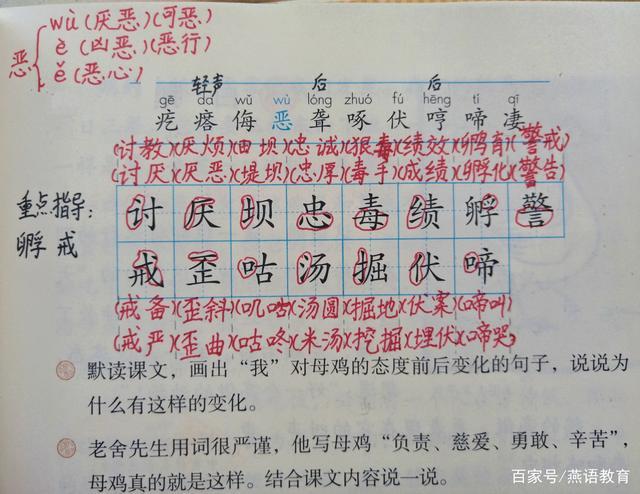 恶
wù(厌恶)(可恶)
è(凶恶)(恶行)
ě(恶心)
轻声 后 后
gē da wǔ wù lóng zhuó fú hēng tí qī
疙瘩侮恶聋啄伏哼啼凄
(讨教)(厌烦)(田坝)(忠诚)(狠毒)(绩效)(孵育)(警戒)
(讨厌)(厌恶)(堤坝)(忠厚)(毒手)(成绩)(孵化)(警告)
重点指导:
孵 戒
讨厌坝忠毒绩孵警
戒歪咕汤掘伏啼
(戒备)(歪斜)(叽咕)(汤圆)(掘地)(伏案)(啼叫)
(戒严)(歪曲)(咕咚)(米汤)(挖掘)(埋伏)(啼哭)
默读课文,画出“我”对母鸡的态度前后变化的句子,说说为
什么有这样的变化。
老舍先生用词很严谨,他写母鸡“负责、慈爱、勇敢、辛苦”,
母鸡真的就是这样。结合课文内容说一说。
百家号/燕语教育